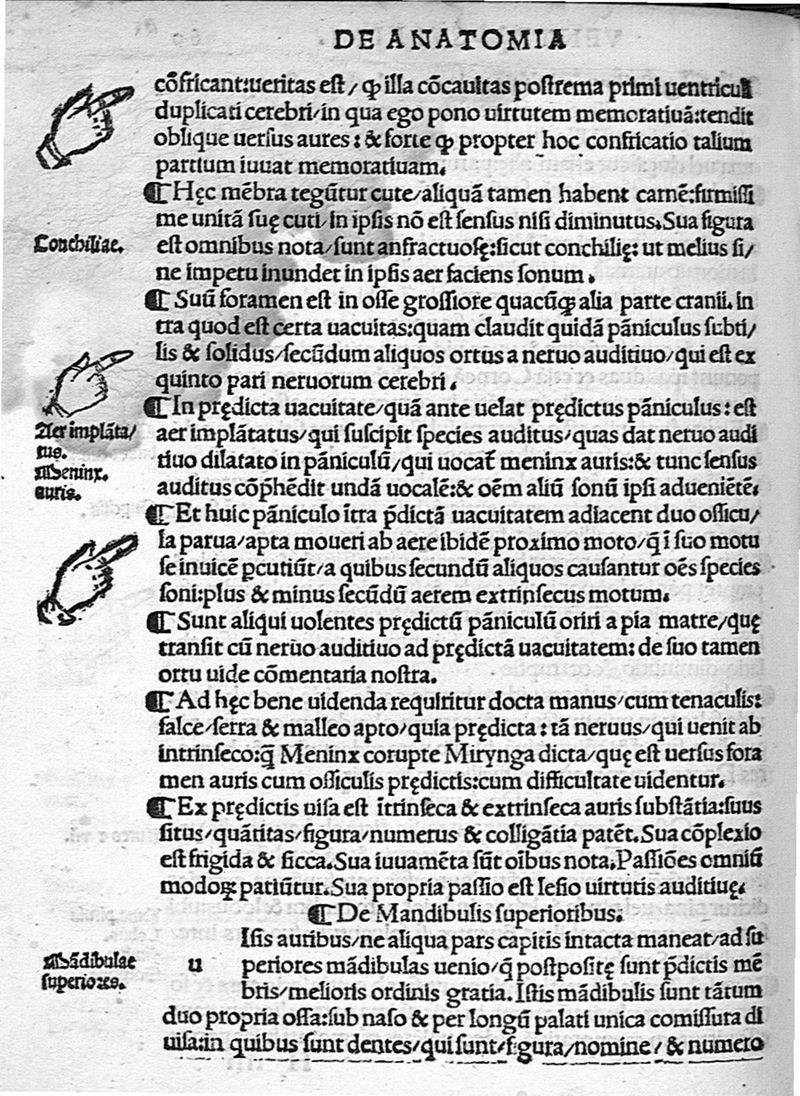 DE ANATOMIA
cõfricant:ueritas est/ ꝙ illa cõcauitas postrema primi uentriculi
duplicati cerebri/in qua ego pono uirtutem memoratiuã:tendit
oblique uersus aures: & forte ꝙ propter hoc confricatio talium
partium iuuat memoratiuam.
¶ Hęc mẽbra tegũtur cute/aliquã tamen habent carnẽ:firmissi
me unitã suę cuti/in ipsis nõ est sensus nisi diminutus.Sua figura
Conchiliae.
est omnibus nota/sunt anfractuosę:sicut conchilię: ut melius si/
ne impetu inundet in ipsis aer faciens sonum.
¶ Suũ foramen est in osse grossiore quacũqꝫ alia parte cranii. in
tra quod est certa uacuitas:quam claudit quidã pãniculus subti/
lis & solidus/secũdum aliquos ortus a neruo auditiuo/qui est ex
quinto pari neruorum cerebri.
¶ In prędicta uacuitate/quã ante uelat prędictus pãniculus: est
Aer implãta/
tus.
Meninx.
auris.
aer implãtatus/qui suscipit species auditus/quas dat neruo audi
tiuo dilatato in pãniculũ/qui uocat̃ meninx auris:& tunc sensus
auditus cõp̃hẽdit undã uocalẽ:& oẽm aliũ sonũ ipsi adueniẽtẽ.
¶ Et huic pãniculo ĩtra p̃dictã uacuitatem adiacent duo ossicu/
la parua/apta moueri ab aere ibidẽ proximo moto/q̃ ĩ suo motu
se inuicẽ ꝑcutiũt/a quibus secundũ aliquos causantur oẽs species
soni:plus & minus secũdũ aerem extrinsecus motum.
¶ Sunt aliqui uolentes prędictũ pãniculũ oriri a pia matre/quę
transit cũ neruo auditiuo ad prędictã uacuitatem: de suo tamen
ortu uide cõmentaria nostra.
¶ Ad hęc bene uidenda requiritur docta manus/cum tenaculis:
falce/serra & malleo apto/quia prędicta: tã neruus/qui uenit ab
intrinseco:q̃ Meninx corupte Mirynga dicta/quę est uersus fora
men auris cum ossiculis prędictis:cum difficultate uidentur.
¶ Ex prędictis uisa est ĩtrinseca & extrinseca auris substãtia:suus
situs/quãtitas/figura/numerus & colligãtia patẽt.Sua cõplexio
est frigida & sicca.Sua iuuamẽta sũt oĩbus nota.Passiões omniũ
modoꝝ patiũtur.Sua propria passio est lesio uirtutis auditiuę.
¶ De Mandibulis superioribus.
Mãdibulae
superiores.
u
Isis auribus/ne aliqua pars capitis intacta maneat/ad su
periores mãdibulas uenio/q̃ postpositę sunt p̃dictis mẽ
bris/melioris ordinis gratia.Istis mãdibulis sunt tãtum
duo propria ossa:sub naso & per longũ palati unica comissura di
uisa:in quibus sunt dentes/qui sunt/figura/nomine/ & numero